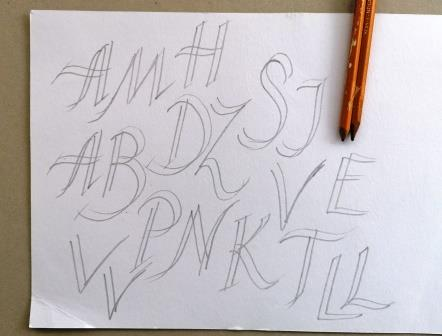 AMH SJ
ABDZ VE
VVPNKTLL